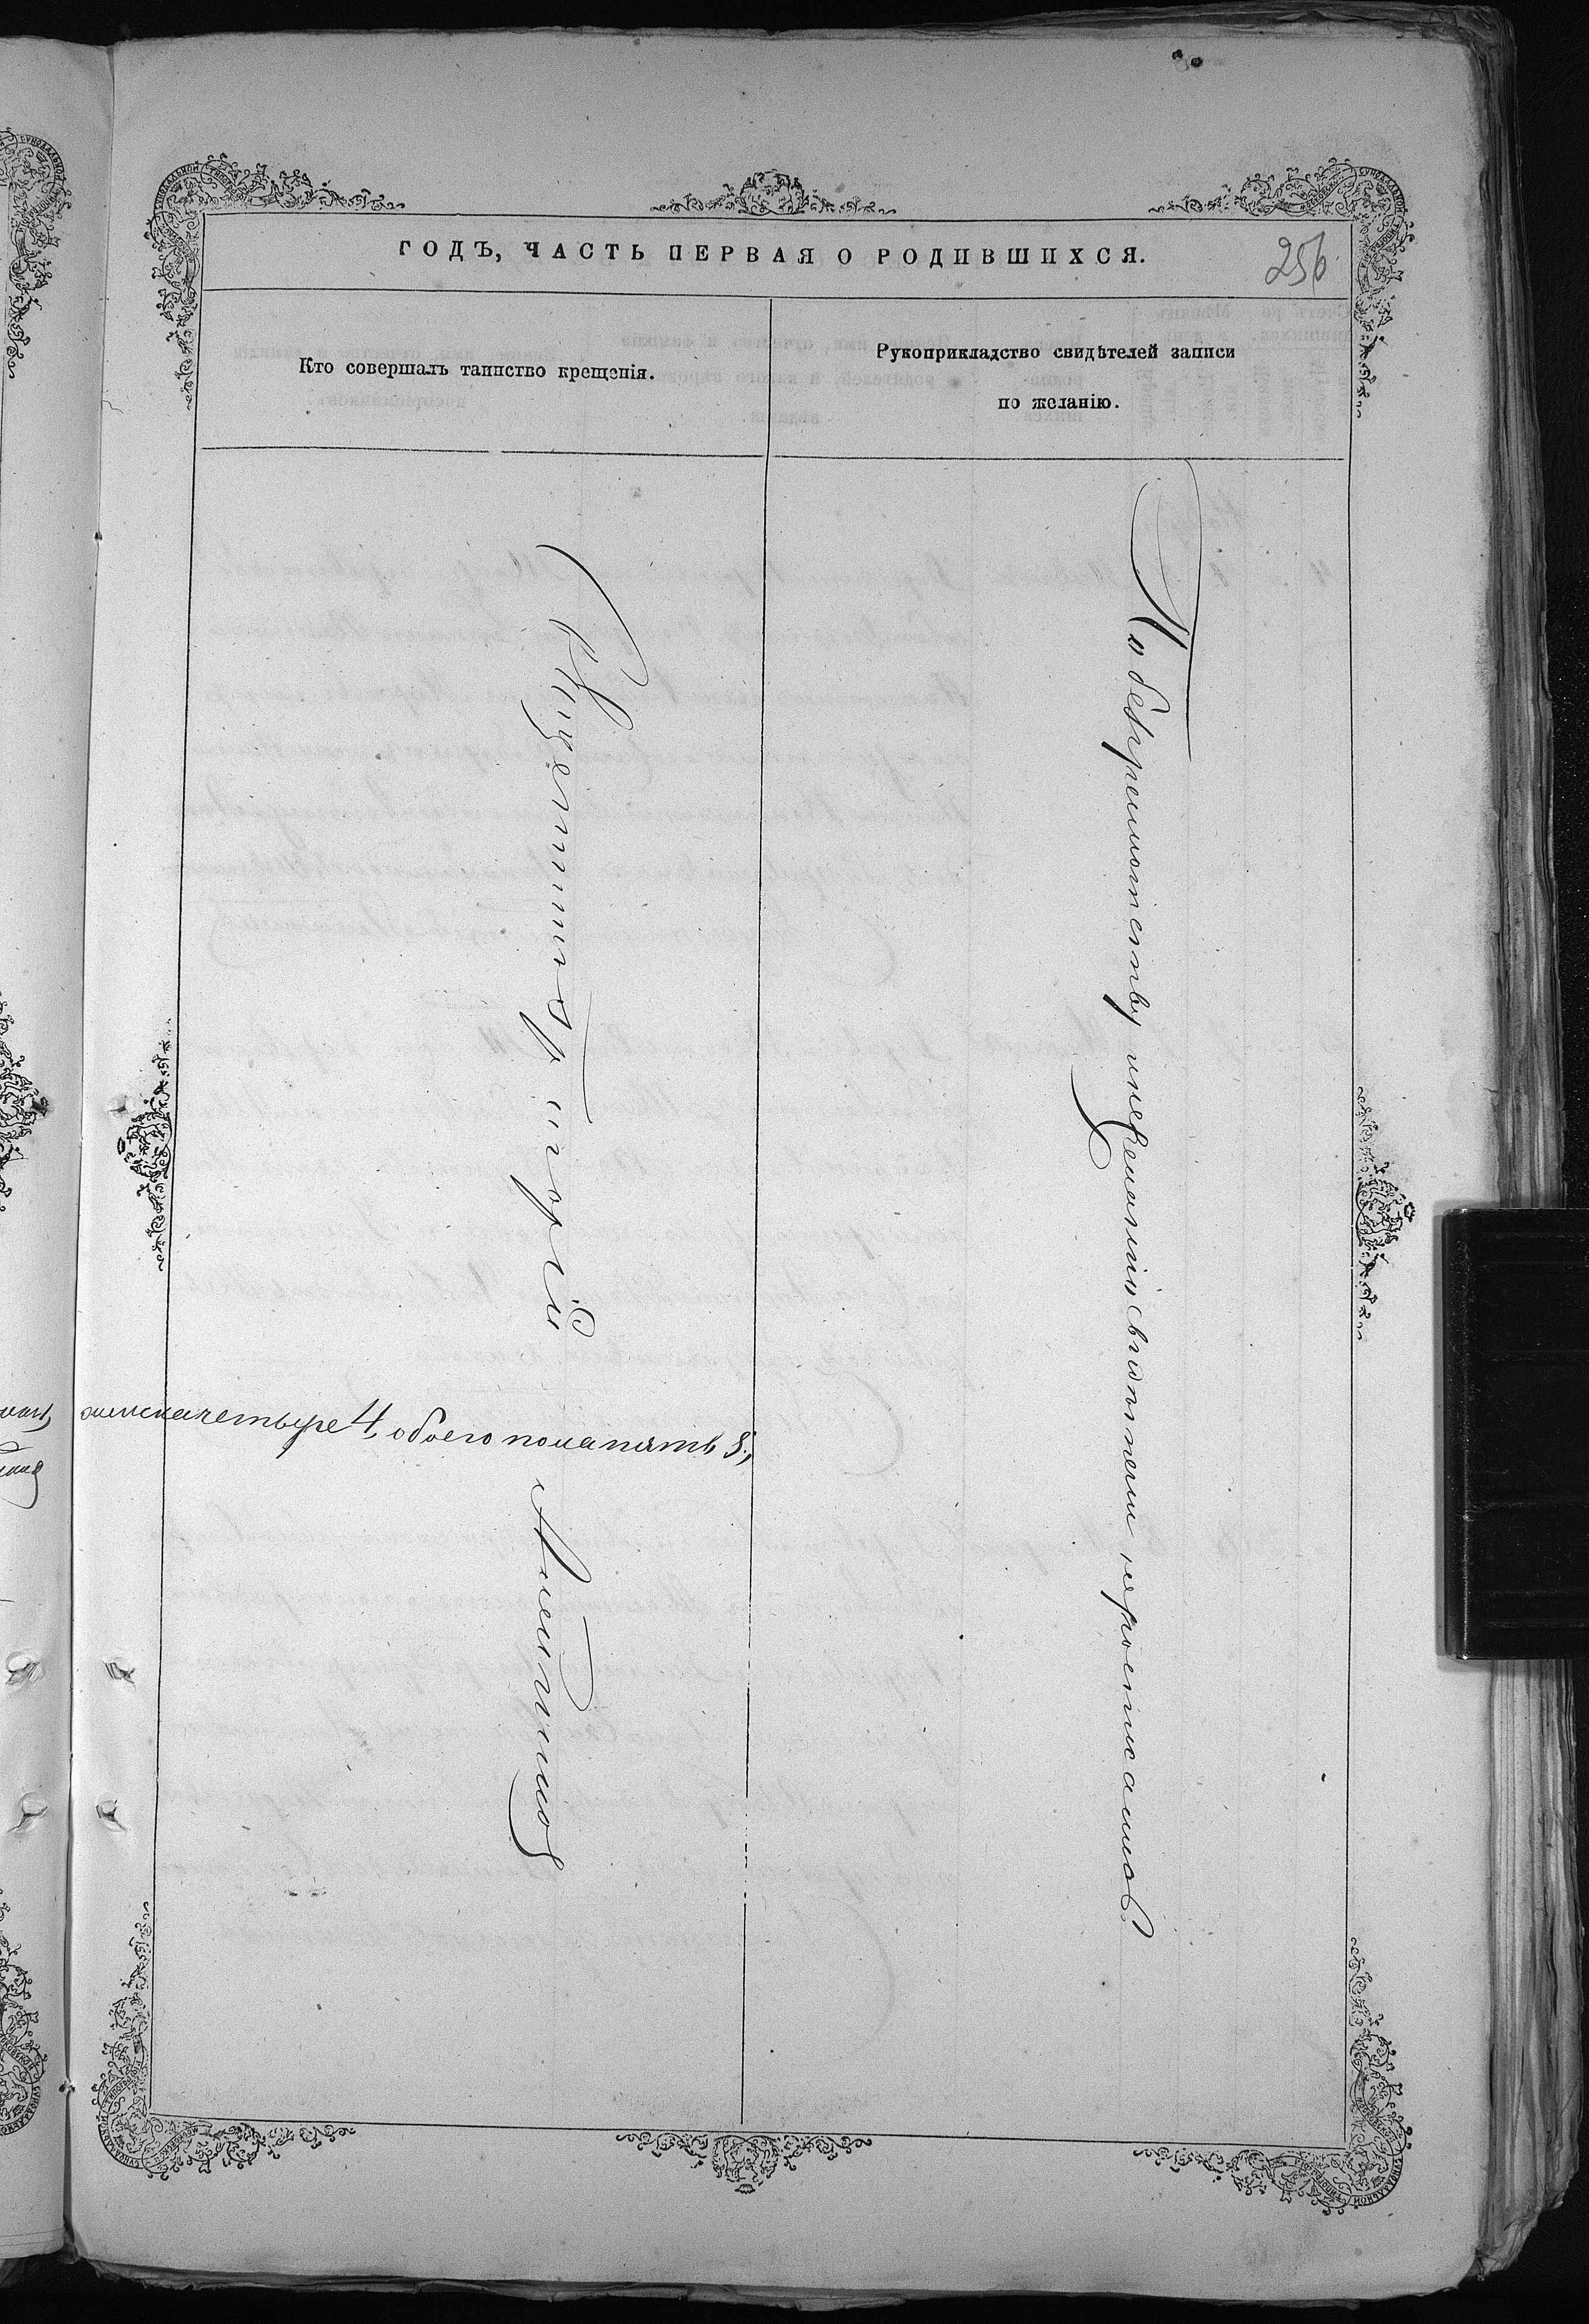 ГОДЪ, ЧАСТЬ ПЕРВАЯ О РОДИВШИХСЯ.
256
Кто совершалъ таинство крещенія.
Рукоприкладство свидѣтелей записи
по желанію.
Священникъ
женска четыре 4, обоего пола пять 5,
По безграмотству и нежеланію свидѣтели не росписались.